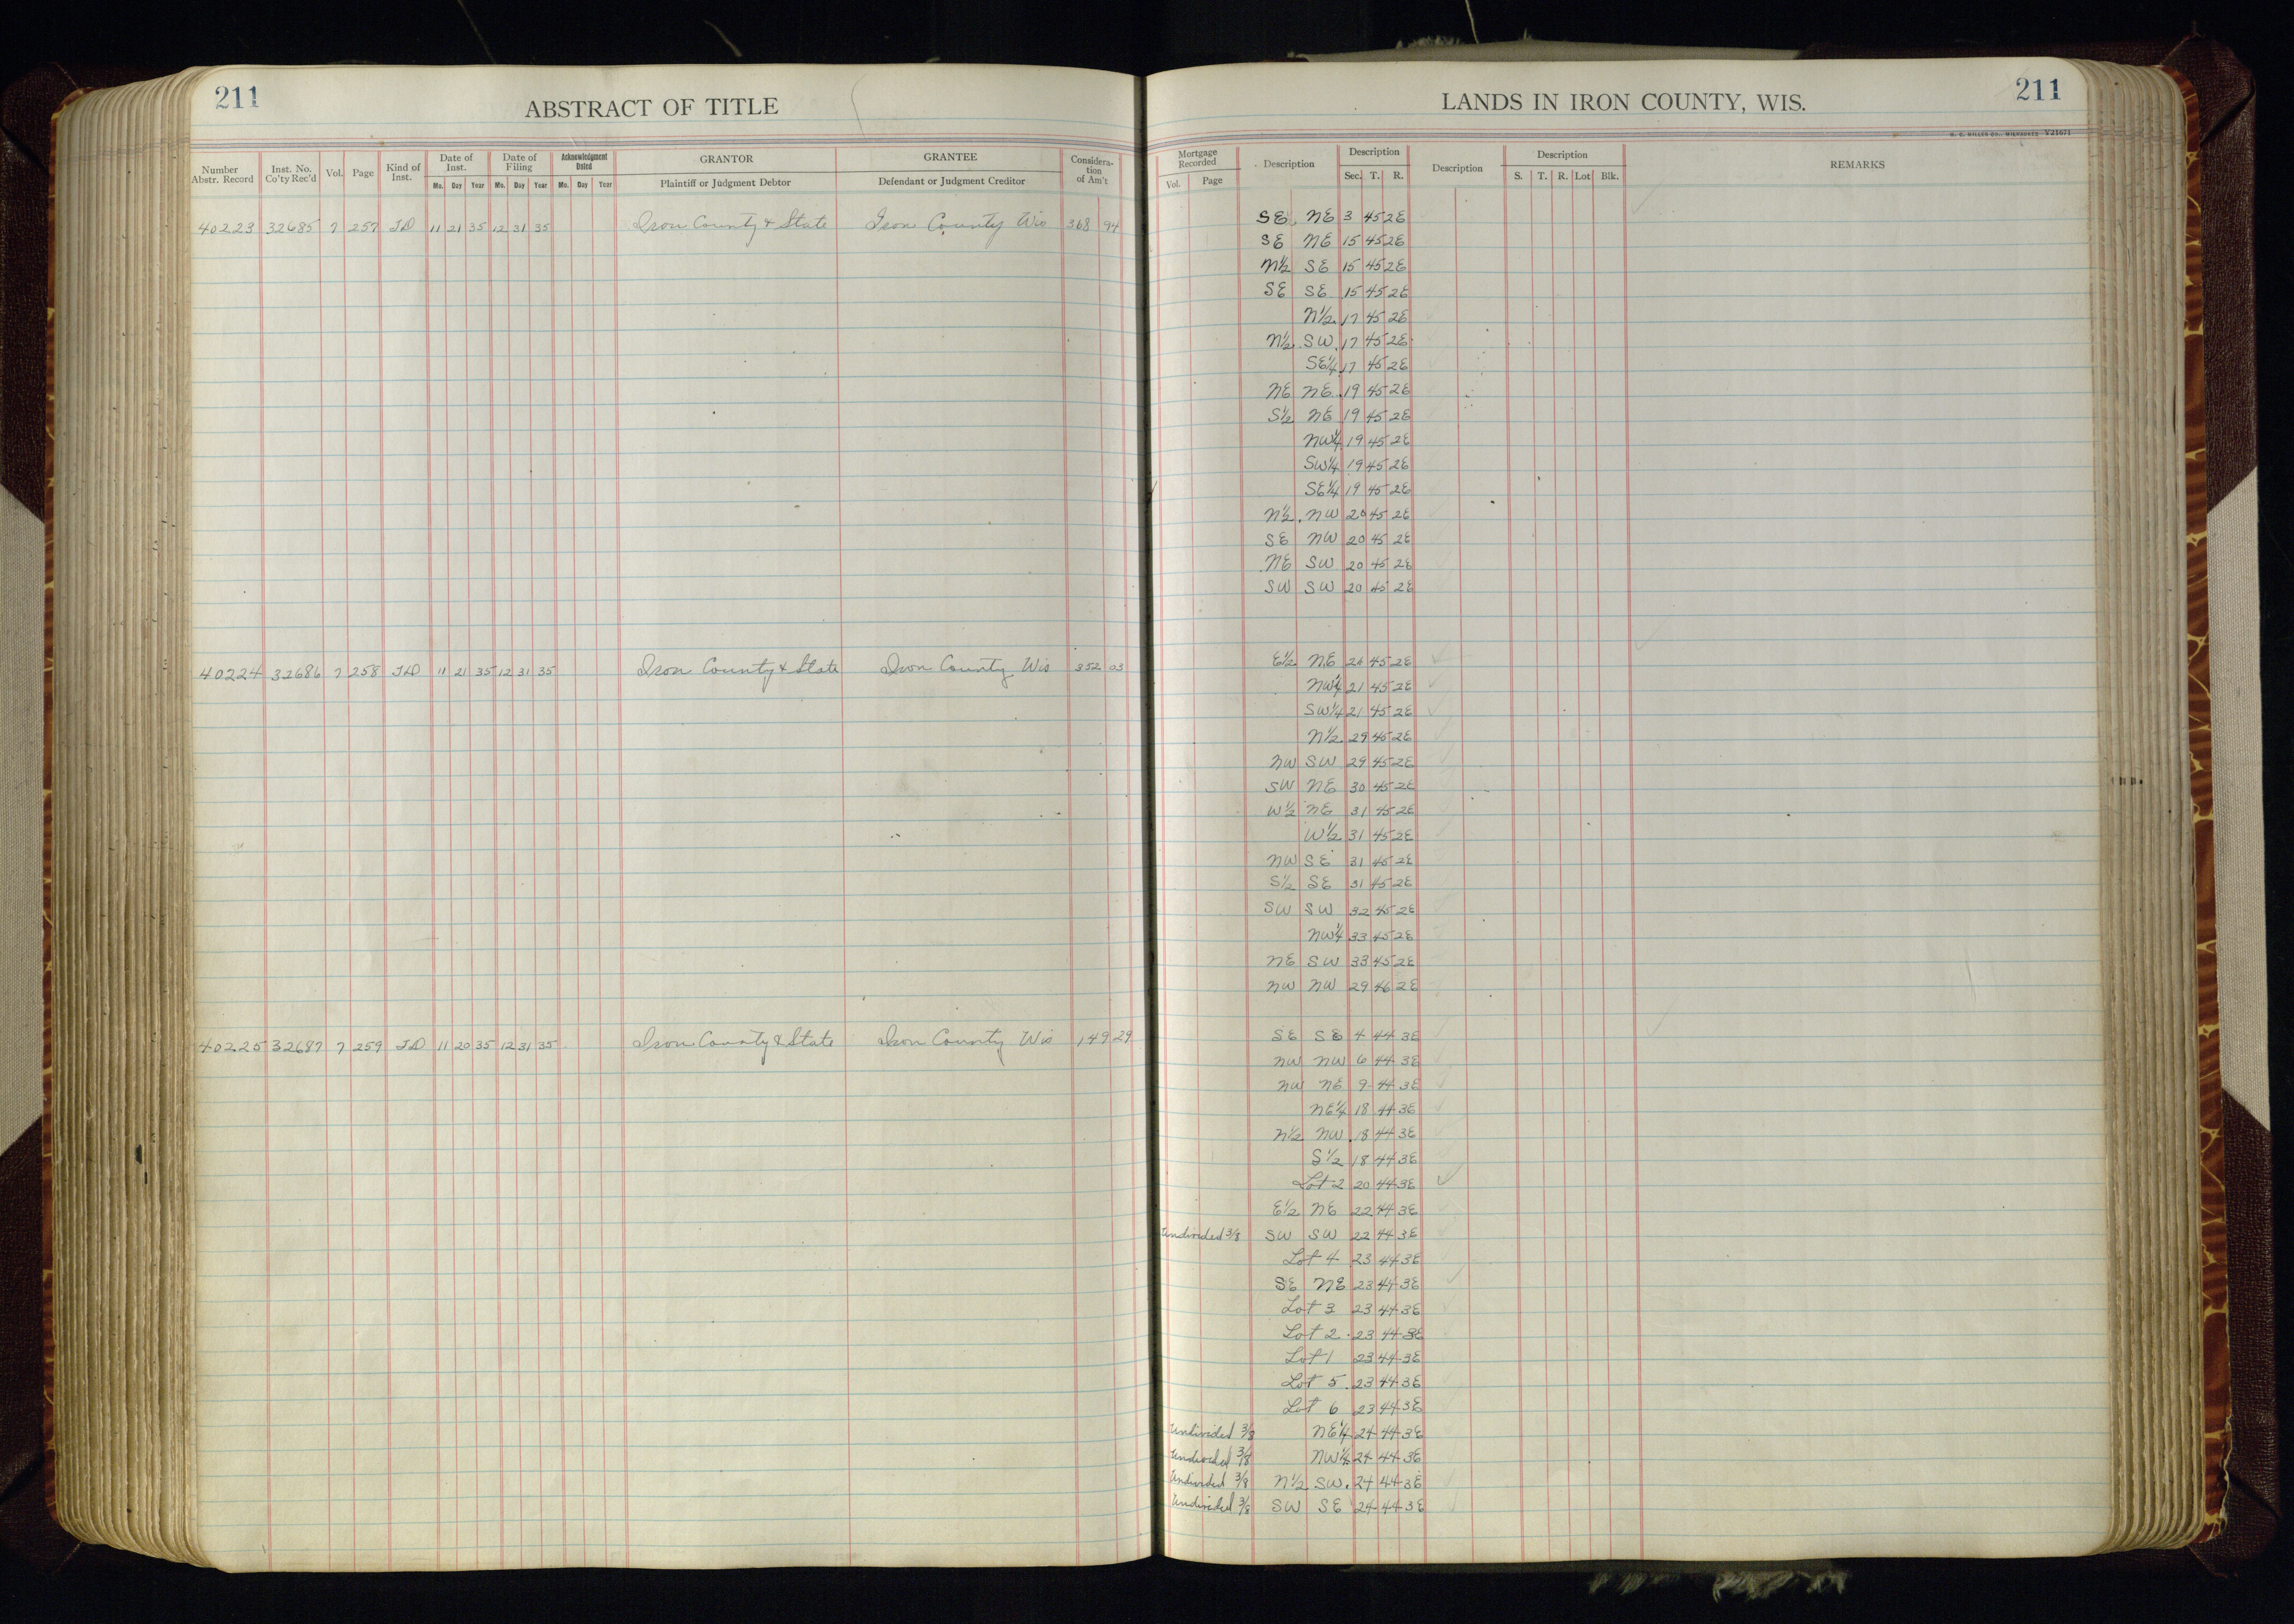 211
ABSTRACT OF TITLE
Number Abstr. Record | Inst. No. Co'ty Rec'd | Vol. | Page | Kind of Inst. | Date of Inst. Mo. Day Year | Date of Filing Mo. Day Year | Acknowledgment Dated Mo. Day Year | GRANTOR Plaintiff or Judgment Debtor | GRANTEE Defendant or Judgment Creditor | Considera- tion of Am't
40223 32685 7 257 TD 11 21 35 12 31 35 Iron County & State Iron County Wis 368 94
40224 32686 7 258 TD 11 21 35 12 31 35 Iron County & State Iron County Wis 352 03
40225 32687 7 259 TD 11 20 35 12 31 35 Iron County & State Iron County Wis 149 29
LANDS IN IRON COUNTY, WIS.
211
H. C. MILLER CO., MILWAUKEE V21671
Mortgage Recorded Vol. Page | Description | Description Sec. T. R. | Description | Description S. T. R. Lot Blk. | REMARKS
SE NE 3 45 2E
SE NE 15 45 2E
N½ SE 15 45 2E
SE SE 15 45 2E
N½ 17 45 2E
N½ SW 17 45 2E
SE¼ 17 45 2E
NE NE 19 45 2E
S½ NE 19 45 2E
NW¼ 19 45 2E
SW¼ 19 45 2E
SE¼ 19 45 2E
N½ NW 20 45 2E
SE NW 20 45 2E
NE SW 20 45 2E
SW SW 20 45 2E
E½ NE 45 2E
NW¼ 21 45 2E
SW¼ 21 45 2E
N½ 29 45 2E
NW SW 29 45 2E
SW NE 30 45 2E
W½ NE 31 45 2E
W½ 31 45 2E
NW SE 31 45 2E
S½ SE 31 45 2E
SW SW 32 45 2E
NW¼ 33 45 2E
NE SW 33 45 2E
NW NW 29 46 2E
SE SE 4 44 3E
NW NW 6 44 3E
NW NE 9 44 3E
NE¼ 18 44 3E
N½ NW 18 44 3E
S½ 18 44 3E
Lot 2 20 44 3E
E½ NE 22 44 3E
Undivided 3/8 SW SW 22 44 3E
Lot 4 23 44 3E
SE NE 23 44 3E
Lot 3 23 44 3E
Lot 2 23 44 3E
Lot 1 23 44 3E
Lot 5 23 44 3E
Lot 6 23 44 3E
Undivided 3/8 NE¼ 24 44 3E
Undivided 3/8 NW¼ 24 44 3E
Undivided 3/8 N½ SW 24 44 3E
Undivided 3/8 SW SE 24 44 3E